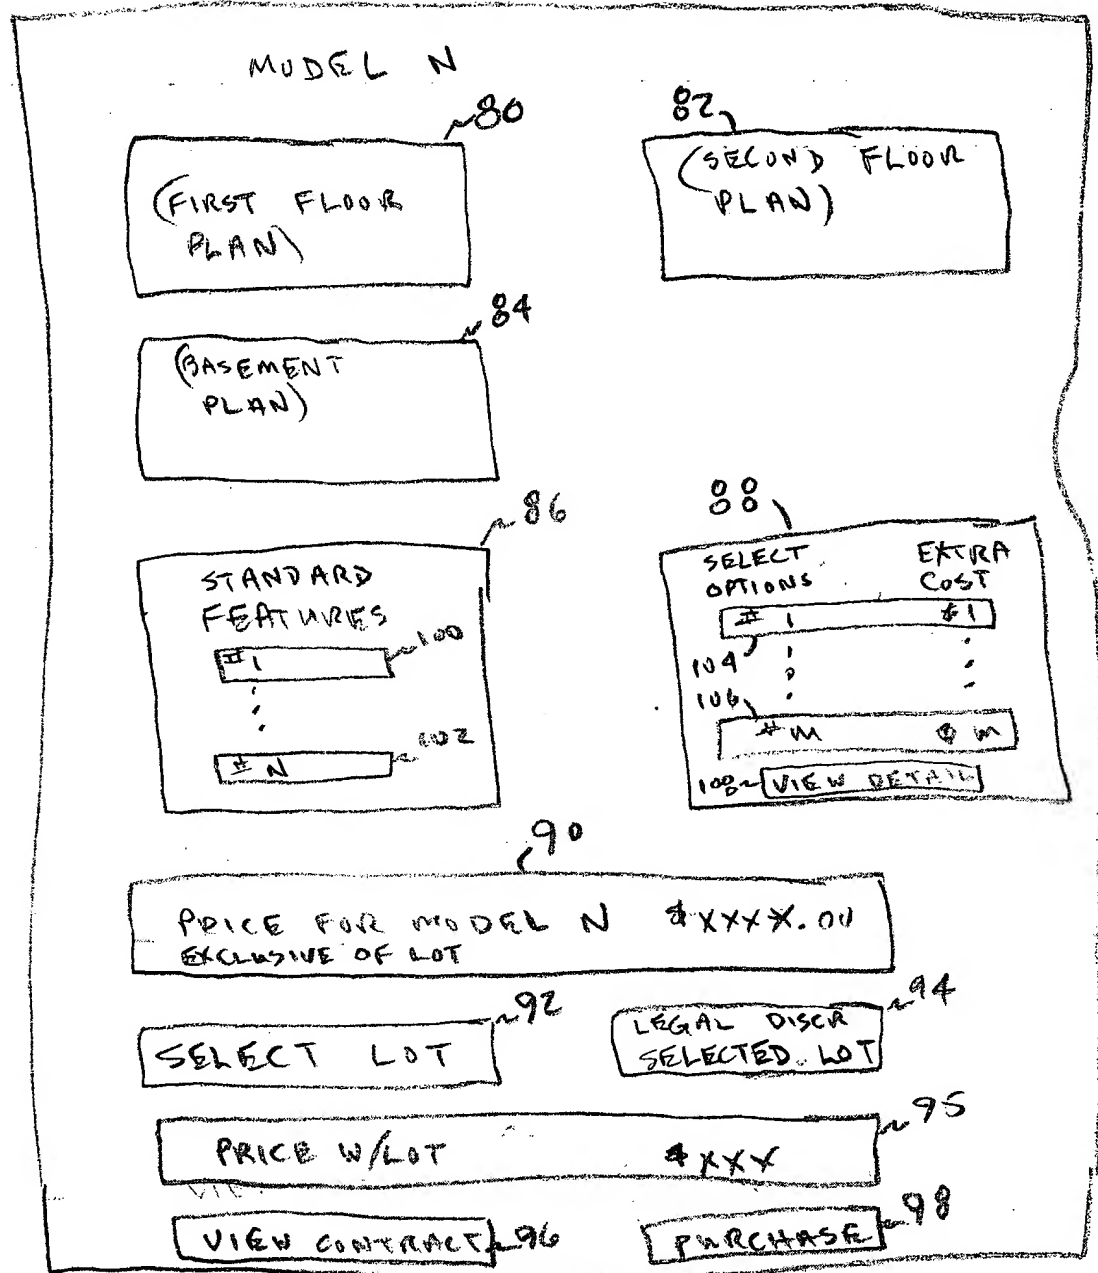 MODEL N
80
(FIRST FLOOR
PLAN)
82
(SECOND FLOOR
PLAN)
84
(BASEMENT
PLAN)
86
STANDARD
FEATURES
#1
100
#N
102
88
SELECT EXTRA
OPTIONS COST
#1 $1
104
106
#M $M
108 VIEW DETAIL
90
PRICE FOR MODEL N $XXXX.00
EXCLUSIVE OF LOT
92
SELECT LOT
94
LEGAL DISCR
SELECTED LOT
95
PRICE W/LOT $XXX
VIEW CONTRACT 96
PURCHASE 98